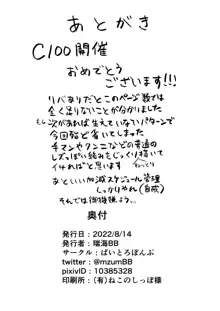 あとがき
C100開催
おめでとう
ございます!!!
リバありだとこのページ数では
全く足りないことが分かりました
もし次があれば生えていないパターンで
今回殆ど省いてしまった
手マンやクンニなどの普通の
レズっぽい絡みもじっくりねっとり描いて
イければと思います
あといい加減スケジュール管理
しっかりやれ(自戒)
それでは御機嫌よう…
奥付
発行日：2022/8/14
発行者：瑞海BB
サークル：ぱいとろぽんぷ
twitter：@mzumBB
pixivID：10385328
印刷所：(有)ねこのしっぽ様